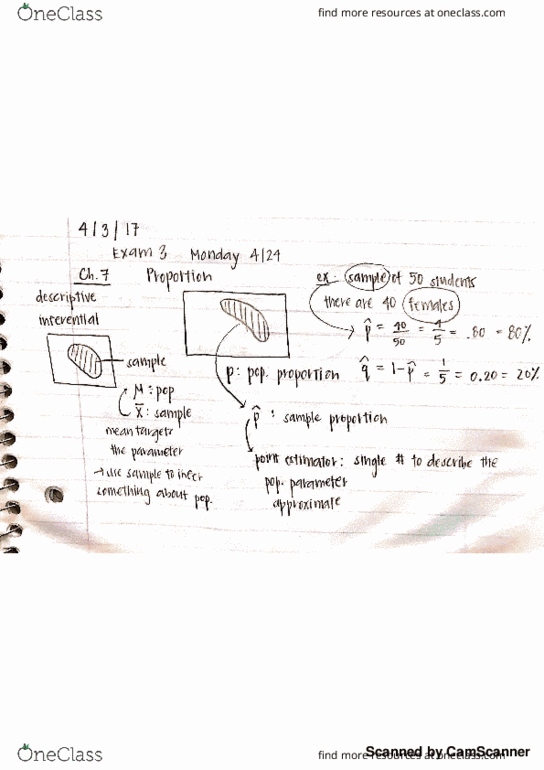 OneClass
find more resources at oneclass.com
4/3/17
Exam 3 Monday 4/24
Ch. 7 Proportion
descriptive
inferential
sample
μ: pop
x̄: sample
mean targets
the parameter
→ use sample to infer
something about pop.
p: pop. proportion
p̂: sample proportion
point estimator: single # to describe the
pop. parameter
approximate
ex: sample of 50 students
there are 40 females
p̂ = 40/50 = 4/5 = .80 = 80%
q̂ = 1-p̂ = 1/5 = 0.20 = 20%
OneClass
find more resources at oneclass.com
Scanned by CamScanner